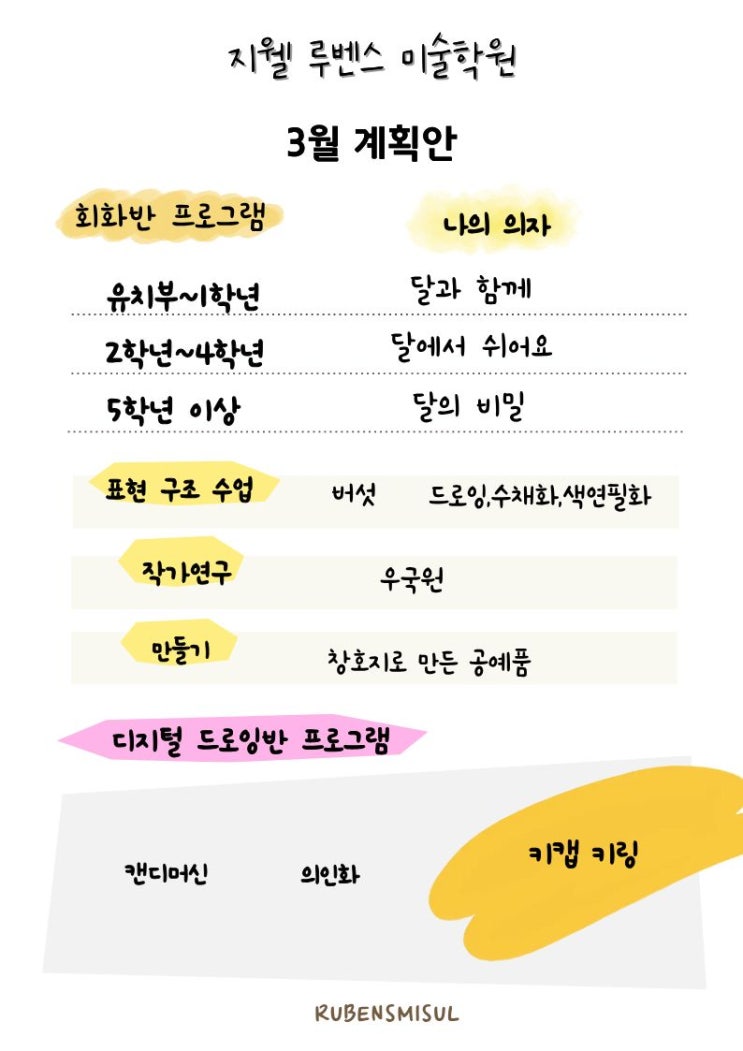 지웰 루벤스 미술학원
3월 계획안
회화반 프로그램 나의 의자
유치부~1학년 달과 함께
2학년~4학년 달에서 쉬어요
5학년 이상 달의 비밀
표현 구조 수업 버섯 드로잉,수채화,색연필화
작가연구 우국원
만들기 창호지로 만든 공예품
디지털 드로잉반 프로그램
캔디머신 의인화 키캡 키링
RUBENSMISUL